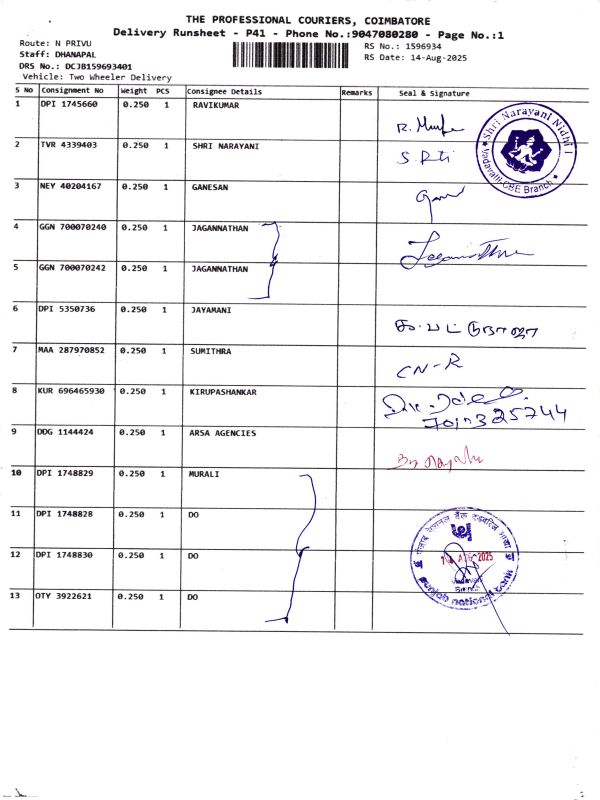 THE PROFESSIONAL COURIERS, COIMBATORE
Delivery Runsheet - P41 - Phone No.:9047080280 - Page No.:1
Route: N PRIVU
RS No.: 1596934
Staff: DHANAPAL
RS Date: 14-Aug-2025
DRS No.: DCJB159693401
Vehicle: Two Wheeler Delivery
S No Consignment No Weight PCS Consignee Details Remarks Seal & Signature
1 DPI 1745660 0.250 1 RAVIKUMAR
Shri Narayani Nidhi
Vadavalli-CBE Branch
2 TVR 4339403 0.250 1 SHRI NARAYANI
3 NEY 40204167 0.250 1 GANESAN
4 GGN 700070240 0.250 1 JAGANNATHAN
5 GGN 700070242 0.250 1 JAGANNATHAN
6 DPI 5350736 0.250 1 JAYAMANI
7 MAA 287970852 0.250 1 SUMITHRA CN-R
8 KUR 696465930 0.250 1 KIRUPASHANKAR
9 DDG 1144424 0.250 1 ARSA AGENCIES
10 DPI 1748829 0.250 1 MURALI
11 DPI 1748828 0.250 1 DO
12 DPI 1748830 0.250 1 DO
2025
Branch
punjab national bank
13 OTY 3922621 0.250 1 DO